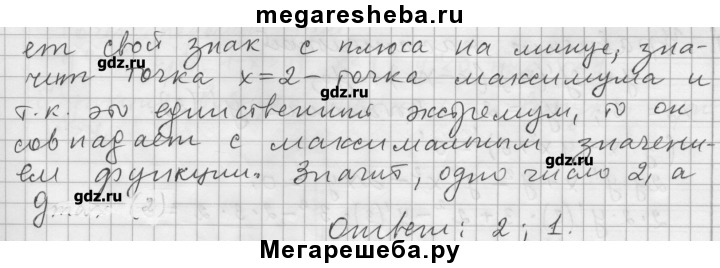 megaresheba.ru
ет свой знак с плюса на минус, зна-
gdz.ru
чит точка x=2 - точка максимума и
gdz.ru
gdz.ru
т.к. это единственный экстремум, то он
gdz.ru
совпадает с максимальным значени-
gdz.ru
ем функции. Значит, одно число 2, а
gdz.ru
Ответ: 2; 1.
Мегарешеба.ру